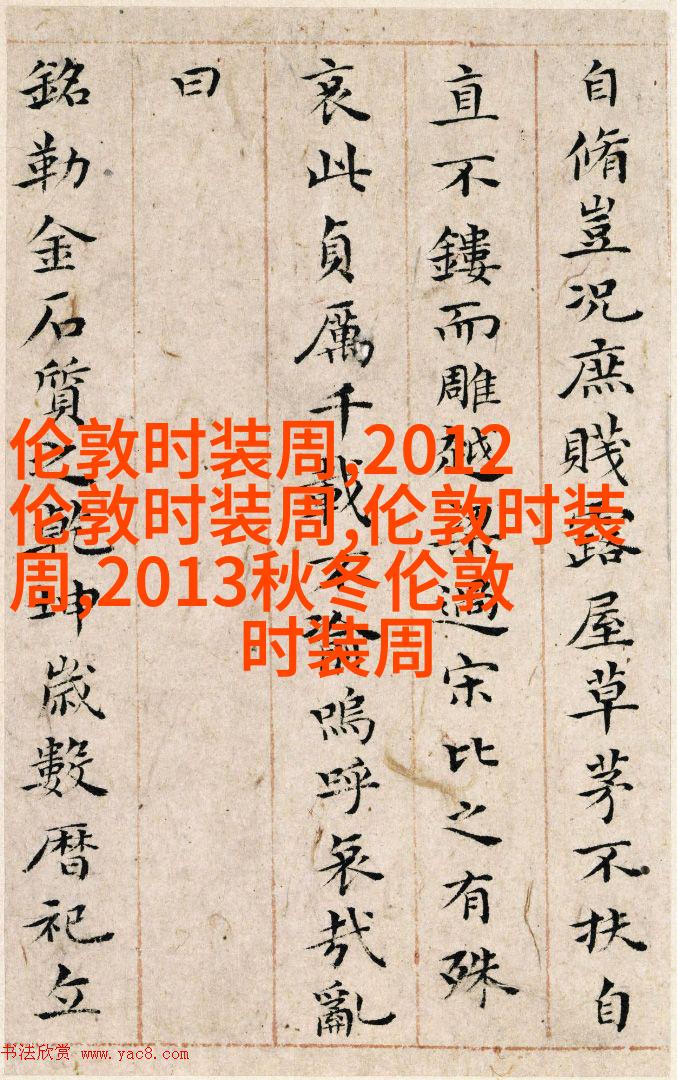 自脩豈况庶賤露屋草茅不扶自
直不鏤而雕越梁過宋比之有殊
哀此貞厲千載不渝嗚呼哀哉亂
曰
銘勒金石質之乾坤歲數曆祀立
伦敦时装周,2012
伦敦时装周,伦敦时装
周,2013秋冬伦敦
时装周
书法欣赏 www.yac8.com